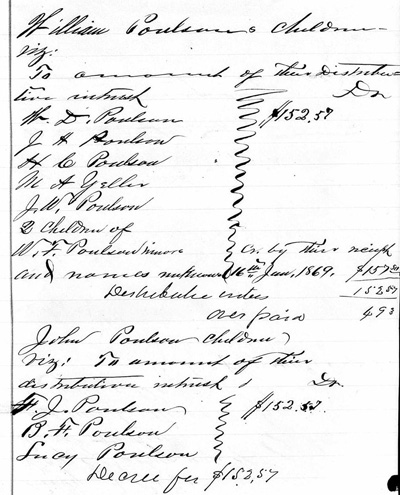 William Poulson's children
viz:
To amount of their Distribu-
tive interest Dr
W. D. Poulson $152.57
J H Poulson
H C Poulson
M A Yeller
J. W. Poulson
2 Children of
W. F. Poulson Cr. by their receipt
and names 16th Jan, 1869. $157.50
Distributive 152.57
over paid 4 93
John Poulson children
viz: To amount of their
distributive interest Dr.
J. Poulson $152.57
B. F. Poulson
Lucy Poulson
Decree for $152,57